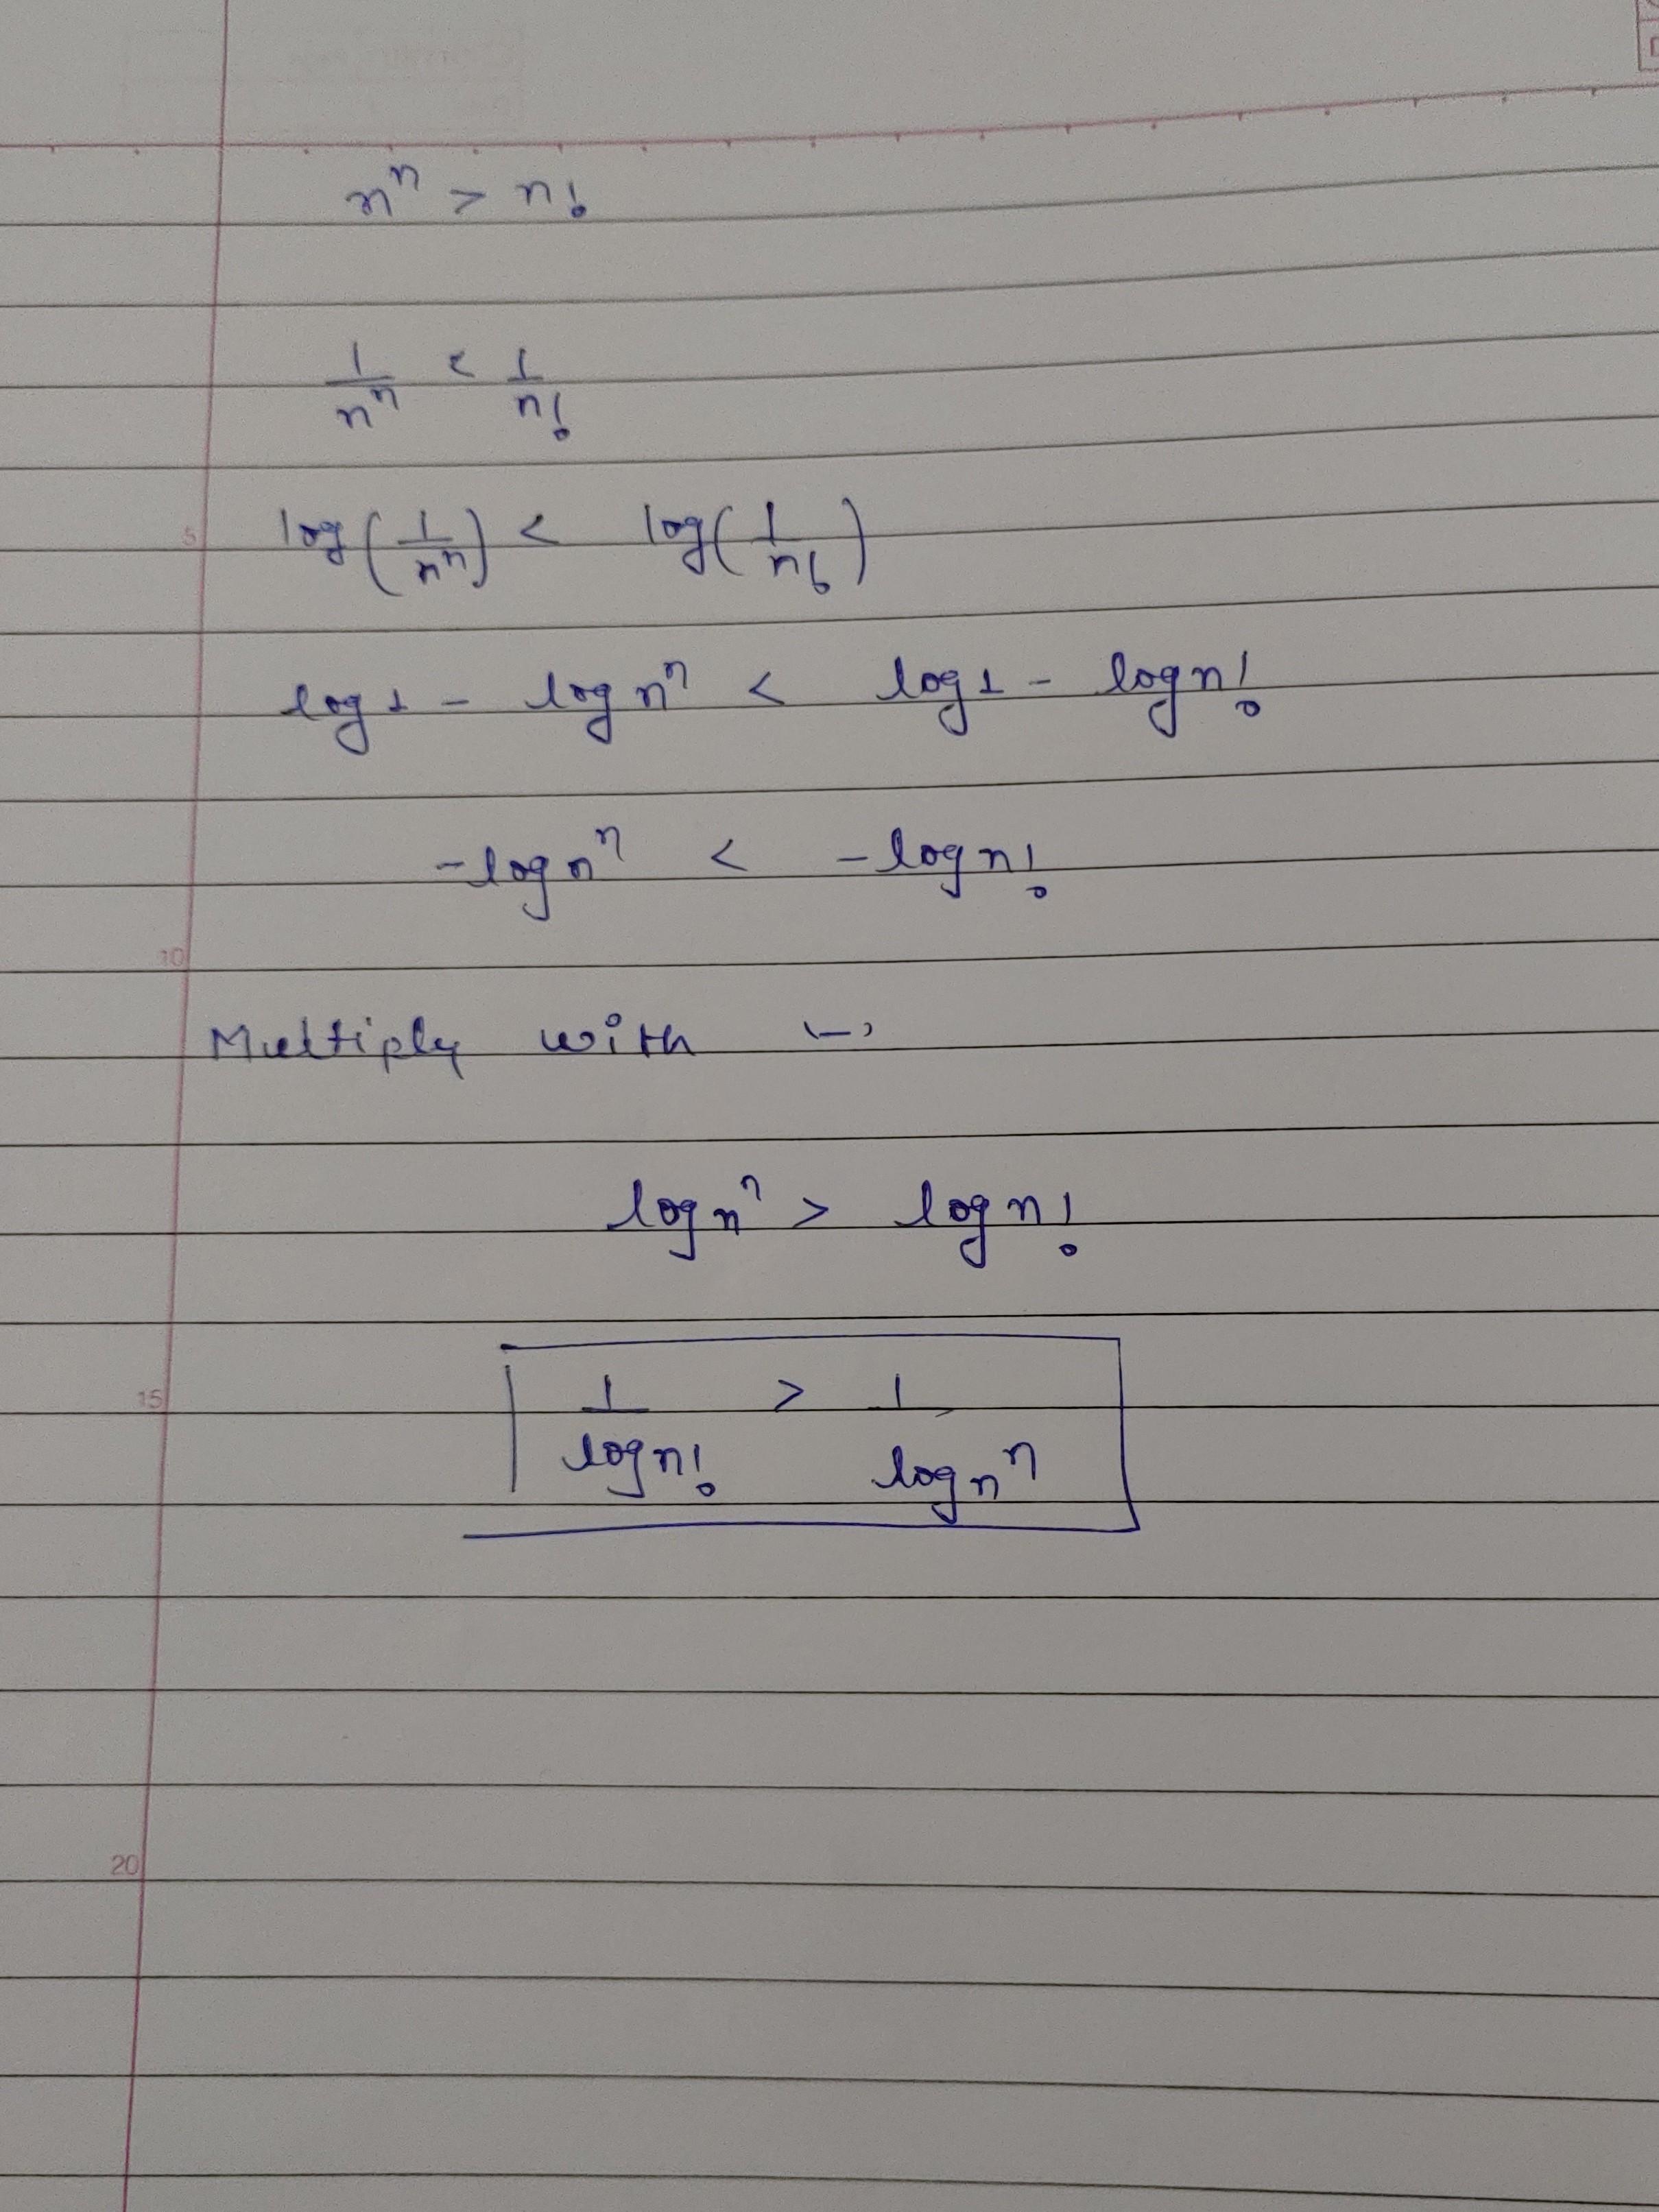 nⁿ > n!
1/nⁿ < 1/n!
log(1/nⁿ) < log(1/n!)
log1 - log nⁿ < log1 - log n!
-log nⁿ < -log n!
Multiply with (-)
log nⁿ > log n!
1/log n! > 1/log nⁿ
5
10
15
20